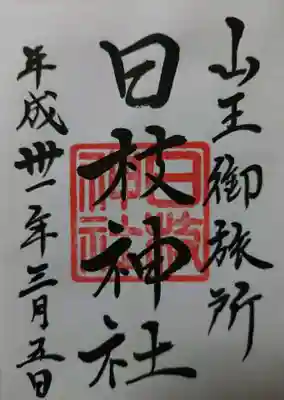 山王御旅所
日枝神社
日枝神社
平成卅一年三月五日